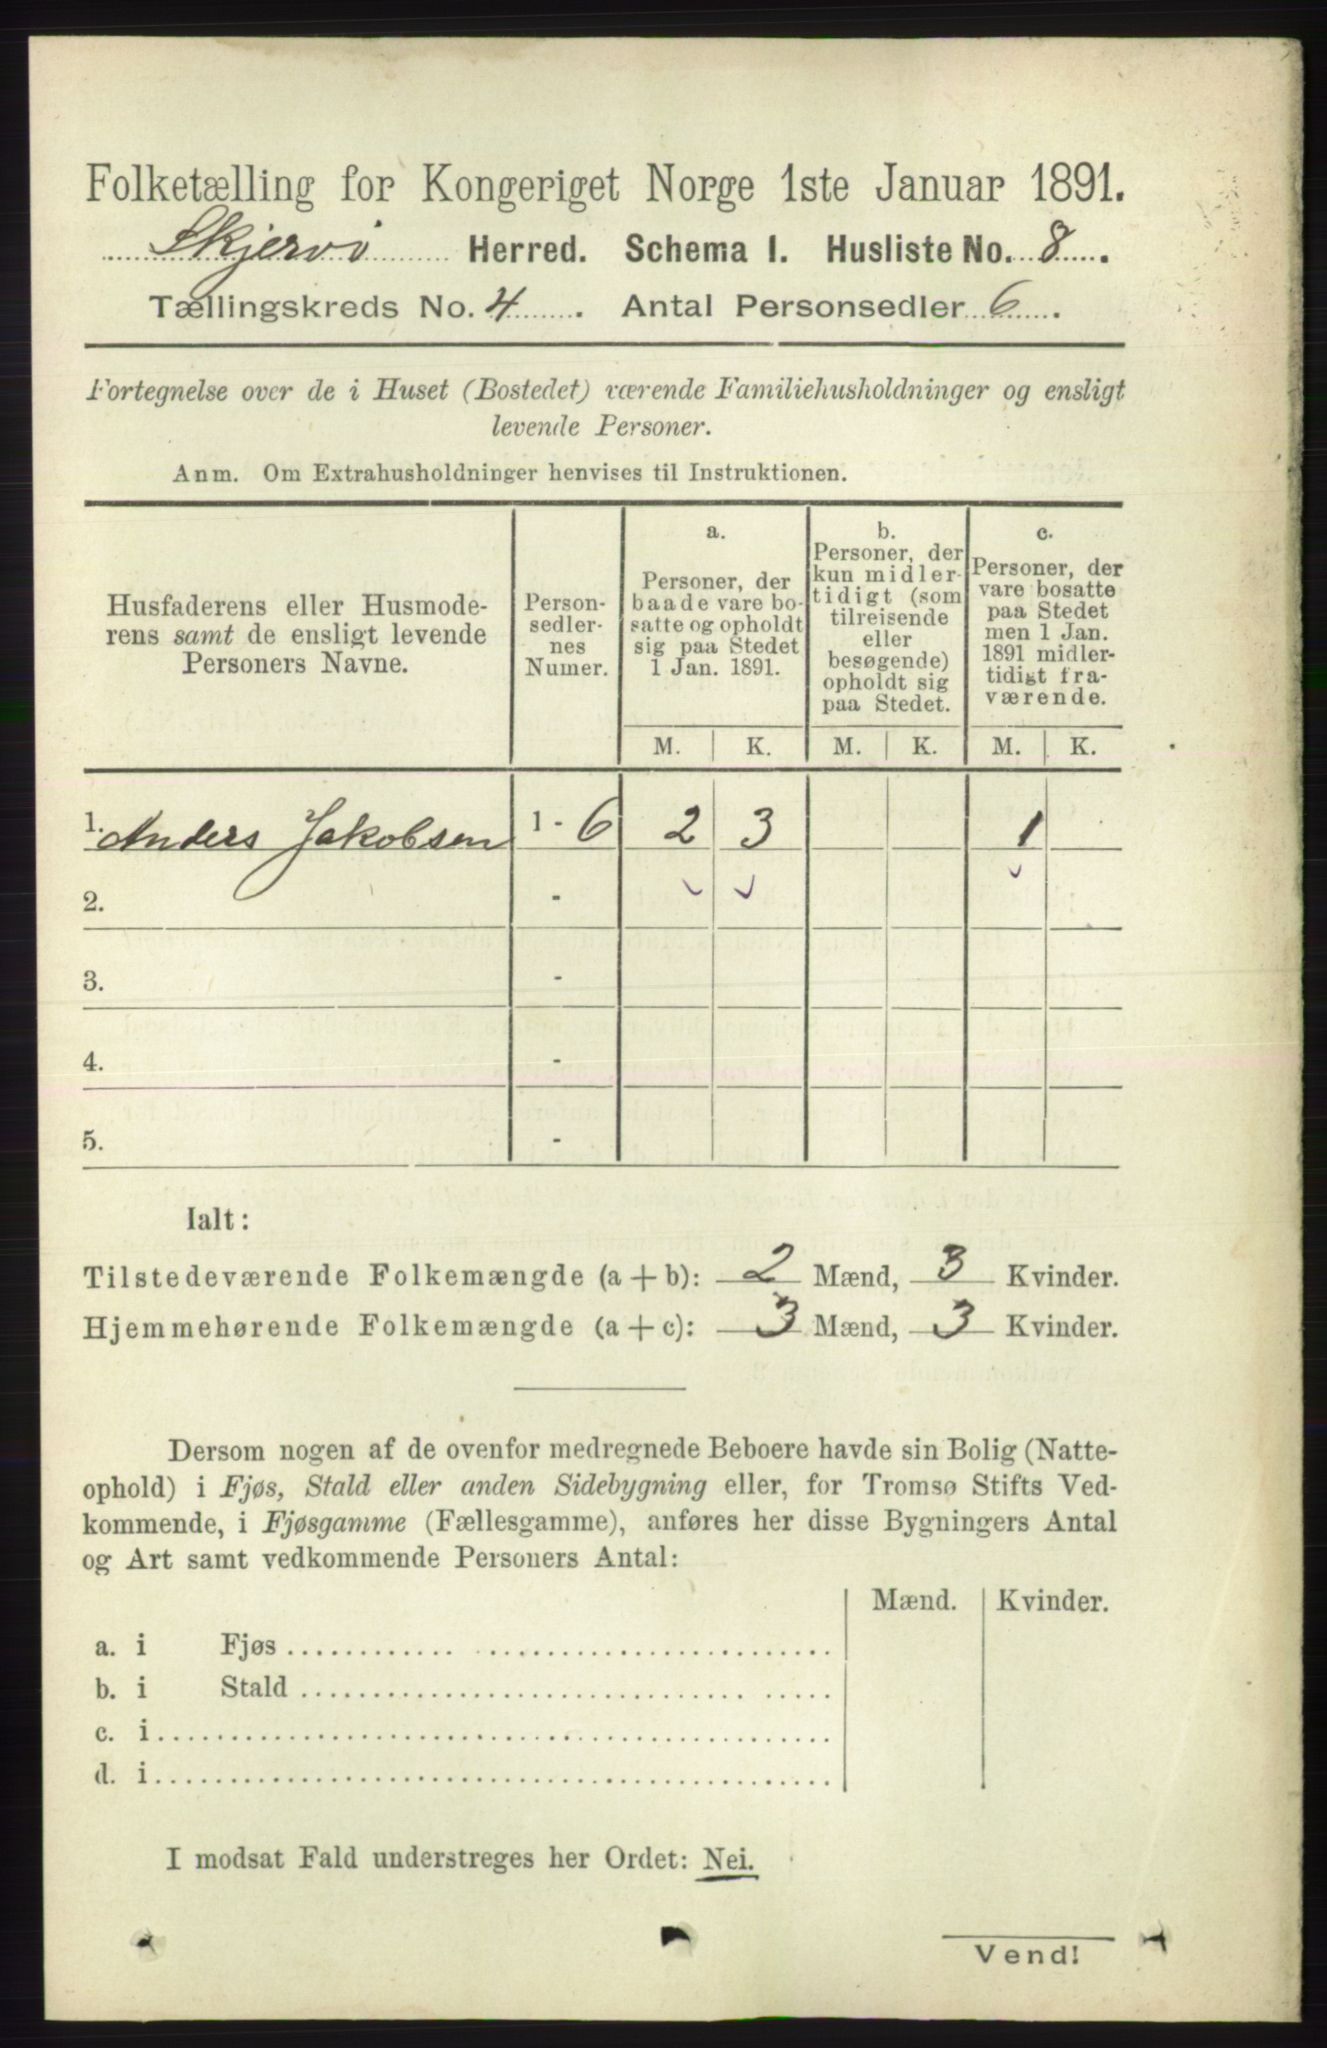 Folketælling for Kongeriget Norge 1ste Januar 1891.
Skjervö Herred. Schema I. Husliste No. 8.
Tællingskreds No. 4. Antal Personsedler 6.
Fortegnelse over de i Huset (Bostedet) værende Familiehusholdninger og ensligt
levende Personer.
Anm. Om Extrahusholdninger henvises til Instruktionen.
Husfaderens eller Husmode-
rens samt de ensligt levende
Personers Navne.
Person-
sedler-
nes
Numer.
a.
Personer, der
baade vare bo-
satte og opholdt
sig paa Stedet
1 Jan. 1891.
b.
Personer, der
kun midler-
tidigt (som
tilreisende
eller
besøgende)
opholdt sig
paa Stedet.
c.
Personer, der
vare bosatte
paa Stedet
men 1 Jan.
1891 midler-
tidigt fra-
værende.
M. K. M. K. M. K.
1. Anders Jakobsen 1 - 6 2 3 1
2. -
3. -
4. -
5. -
Ialt:
Tilstedeværende Folkemængde (a + b): 2 Mænd, 3 Kvinder.
Hjemmehørende Folkemængde (a + c): 3 Mænd, 3 Kvinder.
Dersom nogen af de ovenfor medregnede Beboere havde sin Bolig (Natte-
ophold) i Fjøs, Stald eller anden Sidebygning eller, for Tromsø Stifts Ved-
kommende, i Fjøsgamme (Fællesgamme), anføres her disse Bygningers Antal
og Art samt vedkommende Personers Antal:
Mænd. Kvinder.
a. i Fjøs
b. i Stald
c. i
d. i
I modsat Fald understreges her Ordet: Nei.
Vend!